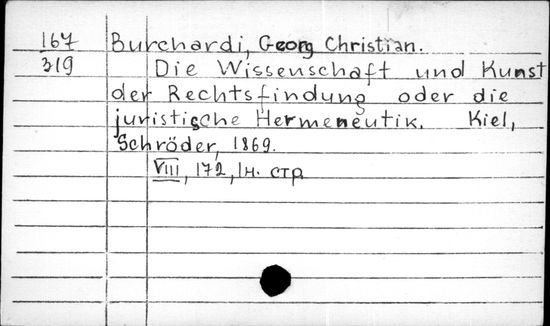 167 Burchardi, Georg Christian.
319 Die Wissenschaft und Kunst
der Rechtsfindung oder die
juristische Hermeneutik. Kiel,
Schröder, 1869.
VIII, 172, 1н. стр